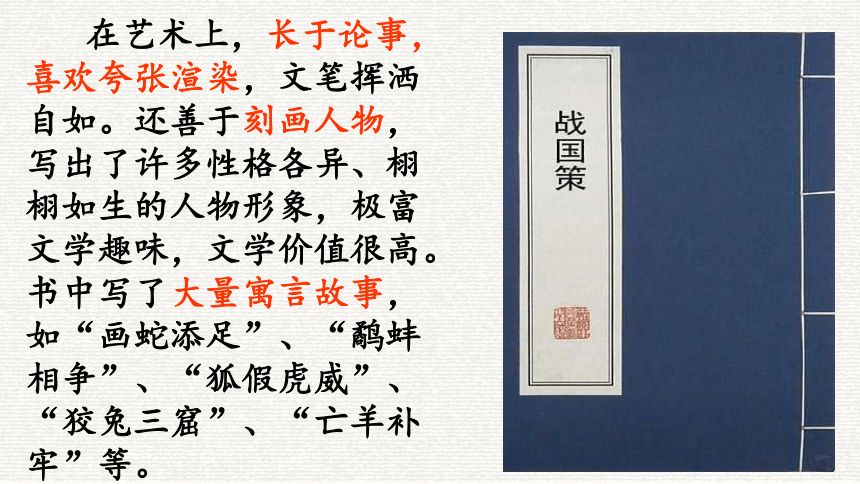 在艺术上，长于论事，
喜欢夸张渲染，文笔挥洒
自如。还善于刻画人物，
写出了许多性格各异、栩
栩如生的人物形象，极富
文学趣味，文学价值很高。
书中写了大量寓言故事，
如“画蛇添足”、“鹬蚌
相争”、“狐假虎威”、
“狡兔三窟”、“亡羊补
牢”等。
战国策